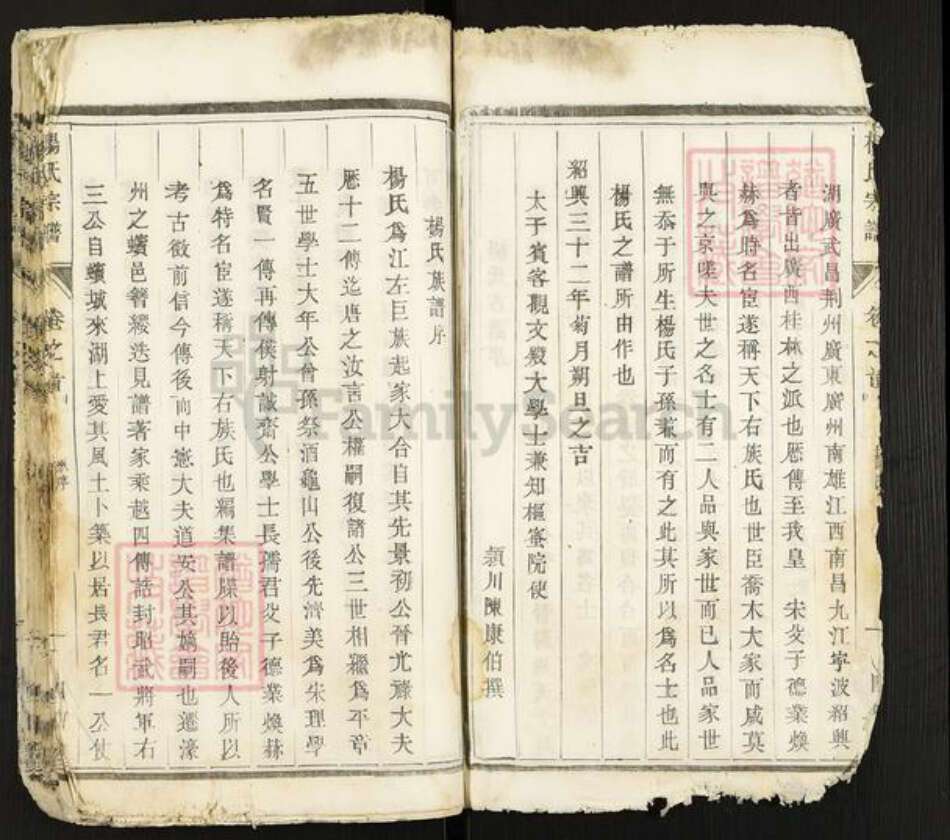 湖廣武昌荆州廣東廣州南雄江西南昌九江寧波紹興
者皆出廣西桂林之派也厯傳至我皇 宋父子德業煥
赫爲時名宦遂稱天下右族氏也世臣喬木大家而咸莫
與之京嗟夫世之名士有二人品與家世而已人品家世
無忝于所生楊氏子孫兼而有之此其所以爲名士也此
楊氏之譜所由作也
紹興三十二年菊月朔旦之吉
太子賓客觀文殿大學士兼知樞蜜院使
潁川陳康伯撰
楊氏族譜序
楊氏爲江左巨族起家大合自其先景初公晉光祿大夫
厯十二傳迄唐之汝言公權嗣復諸公三世相繼爲平章
五世學士大年公曾孫祭酒龜山公後先濟美爲宋理學
名賢一傳再傳侯射誠齋公學士長孺君父子德業煥赫
爲特名宦遂稱天下右族氏也編集譜牒以貽後人所以
考古徵前信今傳後而中憲大夫道安公其嫡嗣也遷濠
州之蠙邑簪纓迭見譜著家乘越四傳誥封昭武將軍右
三公自蠙城來湖上愛其風土卜築以居長君名一
楊氏宗譜 卷之首
楊氏宗譜 卷之首
FamilySearch